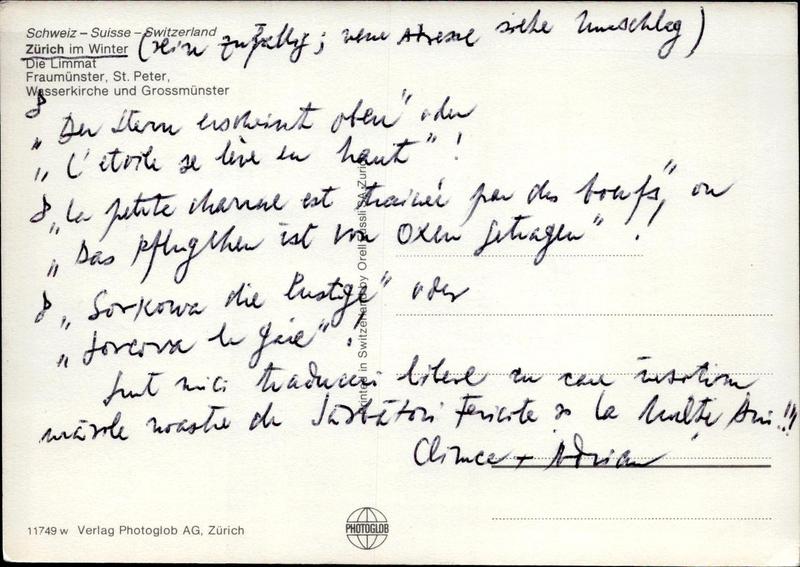 Schweiz – Suisse – Switzerland
Zürich im Winter (rein zufällig; neue Adresse siehe Umschlag)
Die Limmat
Fraumünster, St. Peter,
Wasserkirche und Grossmünster
„Der Stern erscheint oben" oder
„L'étoile se lève en haut"!
„La petite charrue est trainée par des boeufs", ou
„Das Pflugchen ist von Oxen getragen"!
„Sorkowa die Lustige" oder
„Sorcova la gaie"!
Sunt mici traduceri libere cu care insotim
urările noastre de Sărbători Fericite si la Multi Ani!!!
+ Adrian
Printed in Switzerland by Orell Füssli SA Zürich
11749 w Verlag Photoglob AG, Zürich
PHOTOGLOB